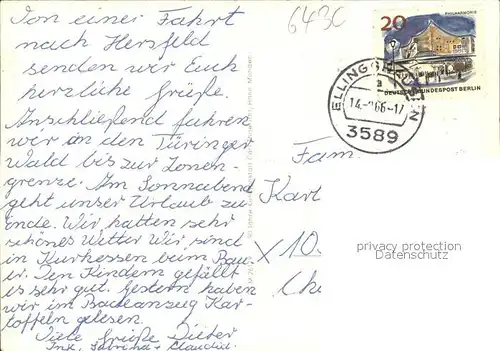 Von einer Fahrt
nach Hersfeld
senden wir Euch
herzliche Grüße.
Anschließend fahren
wir an den Türinger
Wald bis zur Zonen-
grenze. Am Sonnabend
geht unser Urlaub zu
Ende. Wir hatten sehr
schönes Wetter Wir sind
in Kurhessen beim Bau-
er. Den Kindern gefällt
es sehr gut. Gestern haben
wir im Badeanzug Kar-
toffeln gelesen.
Viele Grüße Dieter
Sabrina + Claudia
643C
PHILHARMONIE
20
DEUTSCHE BUNDESPOST BERLIN
14.-966-17
3589
Fam.
Karl
X 10.
privacy protection
Datenschutz